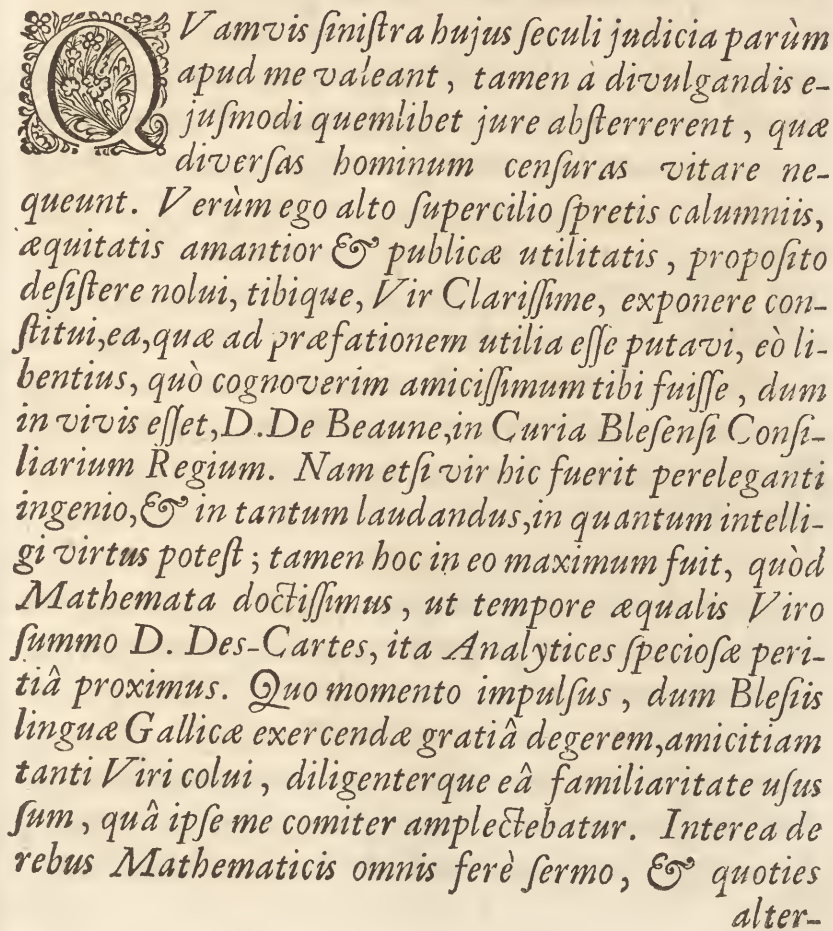 QVamvis ſiniſtra hujus ſeculi judicia parùm
apud me valeant, tamen à divulgandis e-
juſmodi quemlibet jure abſterrerent, quæ
diverſas hominum cenſuras vitare ne-
queunt. Verùm ego alto ſupercilio ſpretis calumniis,
æquitatis amantior & publicæ utilitatis, propoſito
deſiſtere nolui, tibique, Vir Clariſſime, exponere con-
ſtitui,ea,quæ ad præfationem utilia eſſe putavi, eò li-
bentius, quò cognoverim amiciſſimum tibi fuiſſe, dum
in vivis eſſet,D.De Beaune,in Curia Bleſenſi Conſi-
liarium Regium. Nam etſi vir hic fuerit pereleganti
ingenio,& in tantum laudandus,in quantum intelli-
gi virtus poteſt; tamen hoc in eo maximum fuit, quòd
Mathemata doctiſſimus, ut tempore æqualis Viro
ſummo D. Des-Cartes, ita Analytices ſpecioſæ peri-
tiâ proximus. Quo momento impulſus, dum Bleſiis
linguæ Gallicæ exercendæ gratiâ degerem,amicitiam
tanti Viri colui, diligenterque eâ familiaritate uſus
ſum, quâ ipſe me comiter amplectebatur. Interea de
rebus Mathematicis omnis ferè ſermo, & quoties
alter-